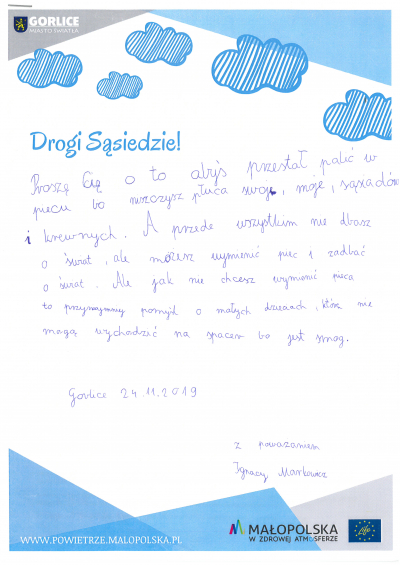 GORLICE
MIASTO ŚWIATŁA
Drogi Sąsiedzie!
Proszę Cię o to abyś przestał palić w
piecu bo niszczysz płuca swoje, moje, sąsadów
i krewnych. A przede wszystkim nie dbasz
o świat, ale możesz wymienić piec i zadbać
o świat. Ale jak nie chcesz wymienić pieca
to przynajmniej pomyśl o małych dzieciach, które nie
mogą wychodzić na spacer bo jest smog.
Gorlice 24.11.2019
z poważaniem
Ignacy Markowicz
WWW.POWIETRZE.MALOPOLSKA.PL
MAŁOPOLSKA
W ZDROWEJ ATMOSFERZE
life